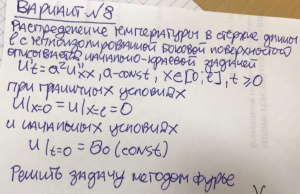 Вариант №8
Распределение температуры в стержне длины
l с теплоизолированной боковой поверхностью
описывается начально-краевой задачей
u't = a²u''xx, a-const, x∈[0; l], t ≥ 0
при граничных условиях
u|x=0 = u|x=l = 0
и начальных условиях
u|t=0 = θ₀ (const)
Решить задачу методом Фурье